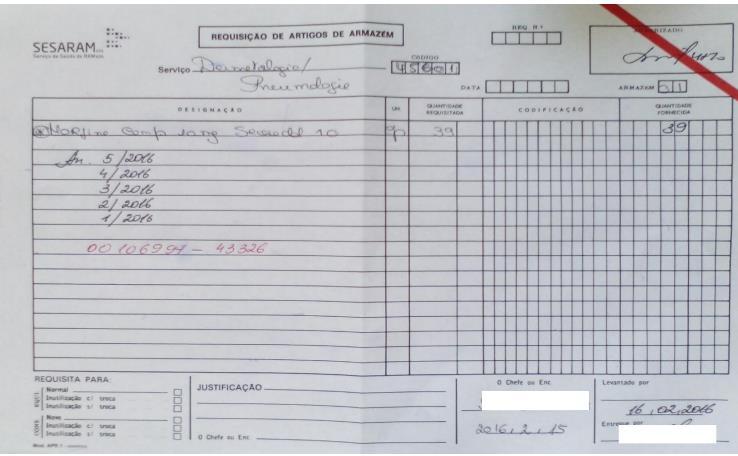 SESARAM
Serviço de Saúde da RAM
REQUISIÇÃO DE ARTIGOS DE ARMAZÉM
REQ. N.º
AUTORIZADO
Serviço Dermatologia/
Pneumologia
CÓDIGO
45601
DATA
ARMAZÉM 01
DESIGNAÇÃO
UN.
QUANTIDADE REQUISITADA
CODIFICAÇÃO
QUANTIDADE FORNECIDA
Morfina Comp 10 mg 39 39
An. 5/2016
4/2016
3/2016
2/2016
1/2016
00106997 - 43326
REQUISITA PARA:
JUSTIFICAÇÃO
O Chefe ou Enc.
Levantado por
Normal
Inutilização c/ troca
Inutilização s/ troca
Novo
Inutilização c/ troca
Inutilização s/ troca
16.02.2016
Entregue por
2016.2.15
O Chefe ou Enc